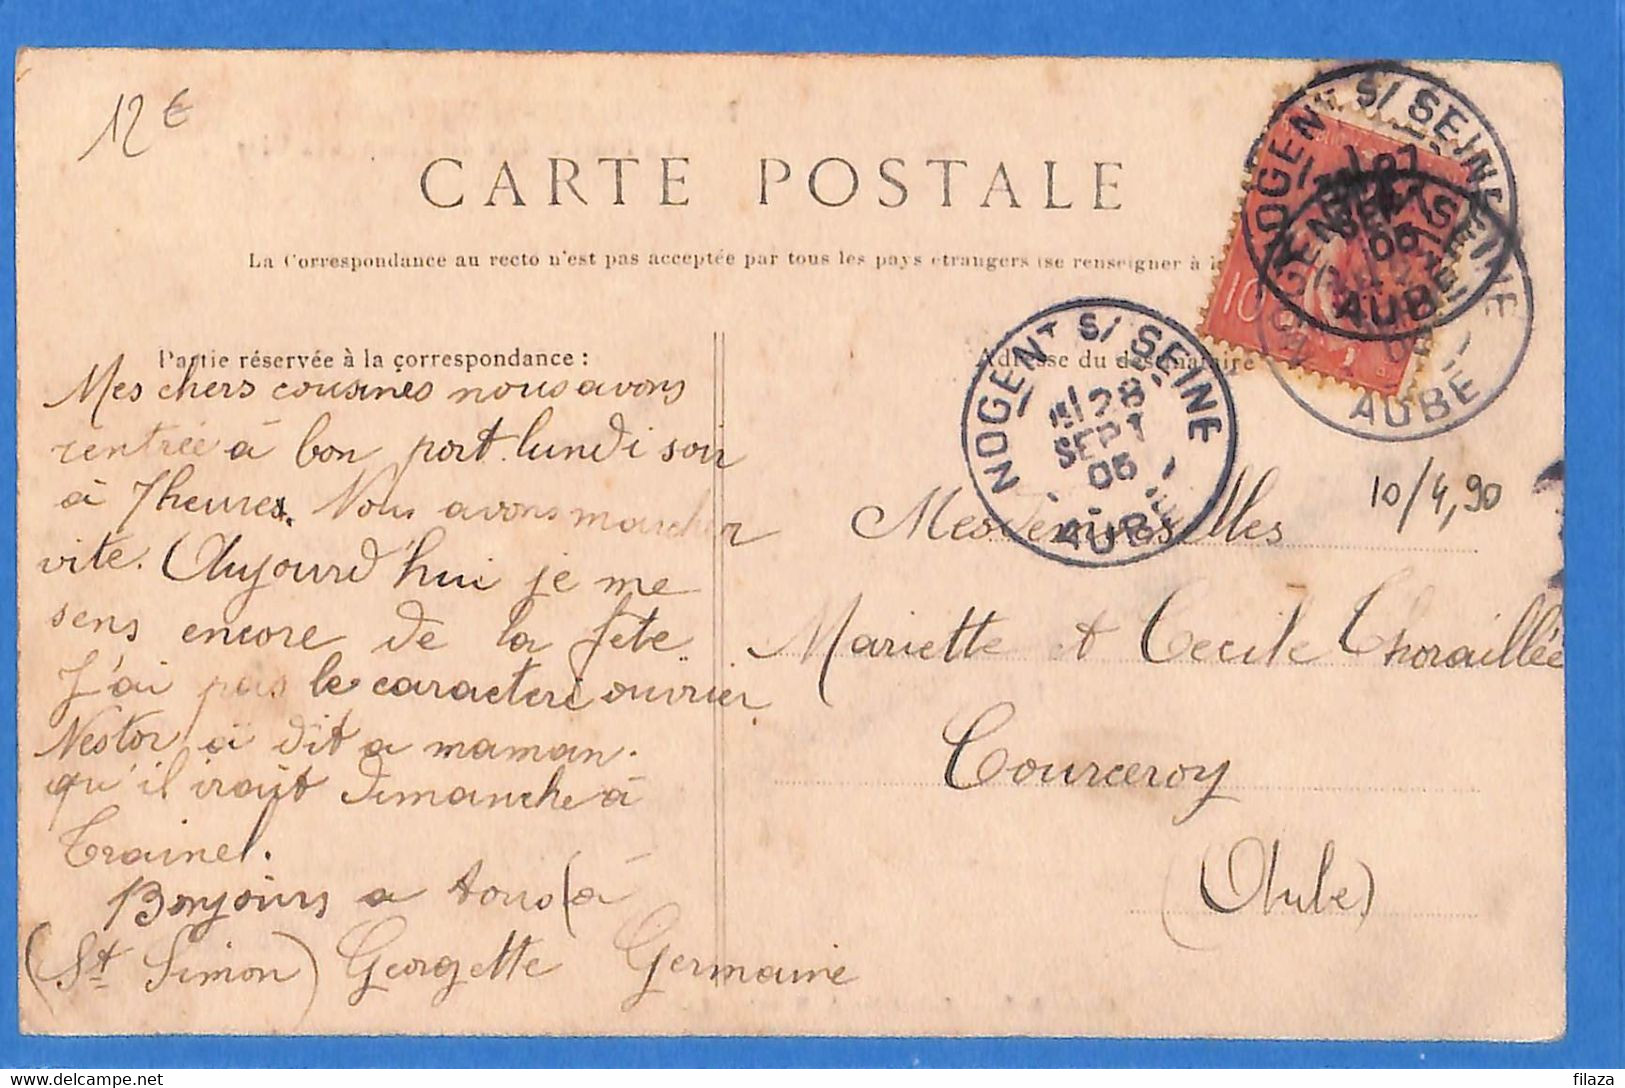 12 €
CARTE POSTALE
La Correspondance au recto n'est pas acceptée par tous les pays étrangers (se renseigner à
Partie réservée à la correspondance :
Adresse du destinataire
Mes chers cousines nous avons
rentrée à bon port lundi soir
à 7 heures. Nous avons marcher
vite. Aujourd'hui je me
sens encore de la fete.
J'ai pas le caractere ouvrier
Nestor a dit a maman.
qu'il irait dimanche à
Trainel.
Bonjours a tous (à
(St Simon) Georgette Germaine
NOGENT S/ SEINE
27
SEPT
05
AUBE
10
NOGENT S/ SEINE
AUBE
NOGENT S/ SEINE
28
SEPT
05
AUBE
10/4,90
Mesdemoiselles
Mariette et Cecile Thoraillée
Courceroy
(Aube)
filaza